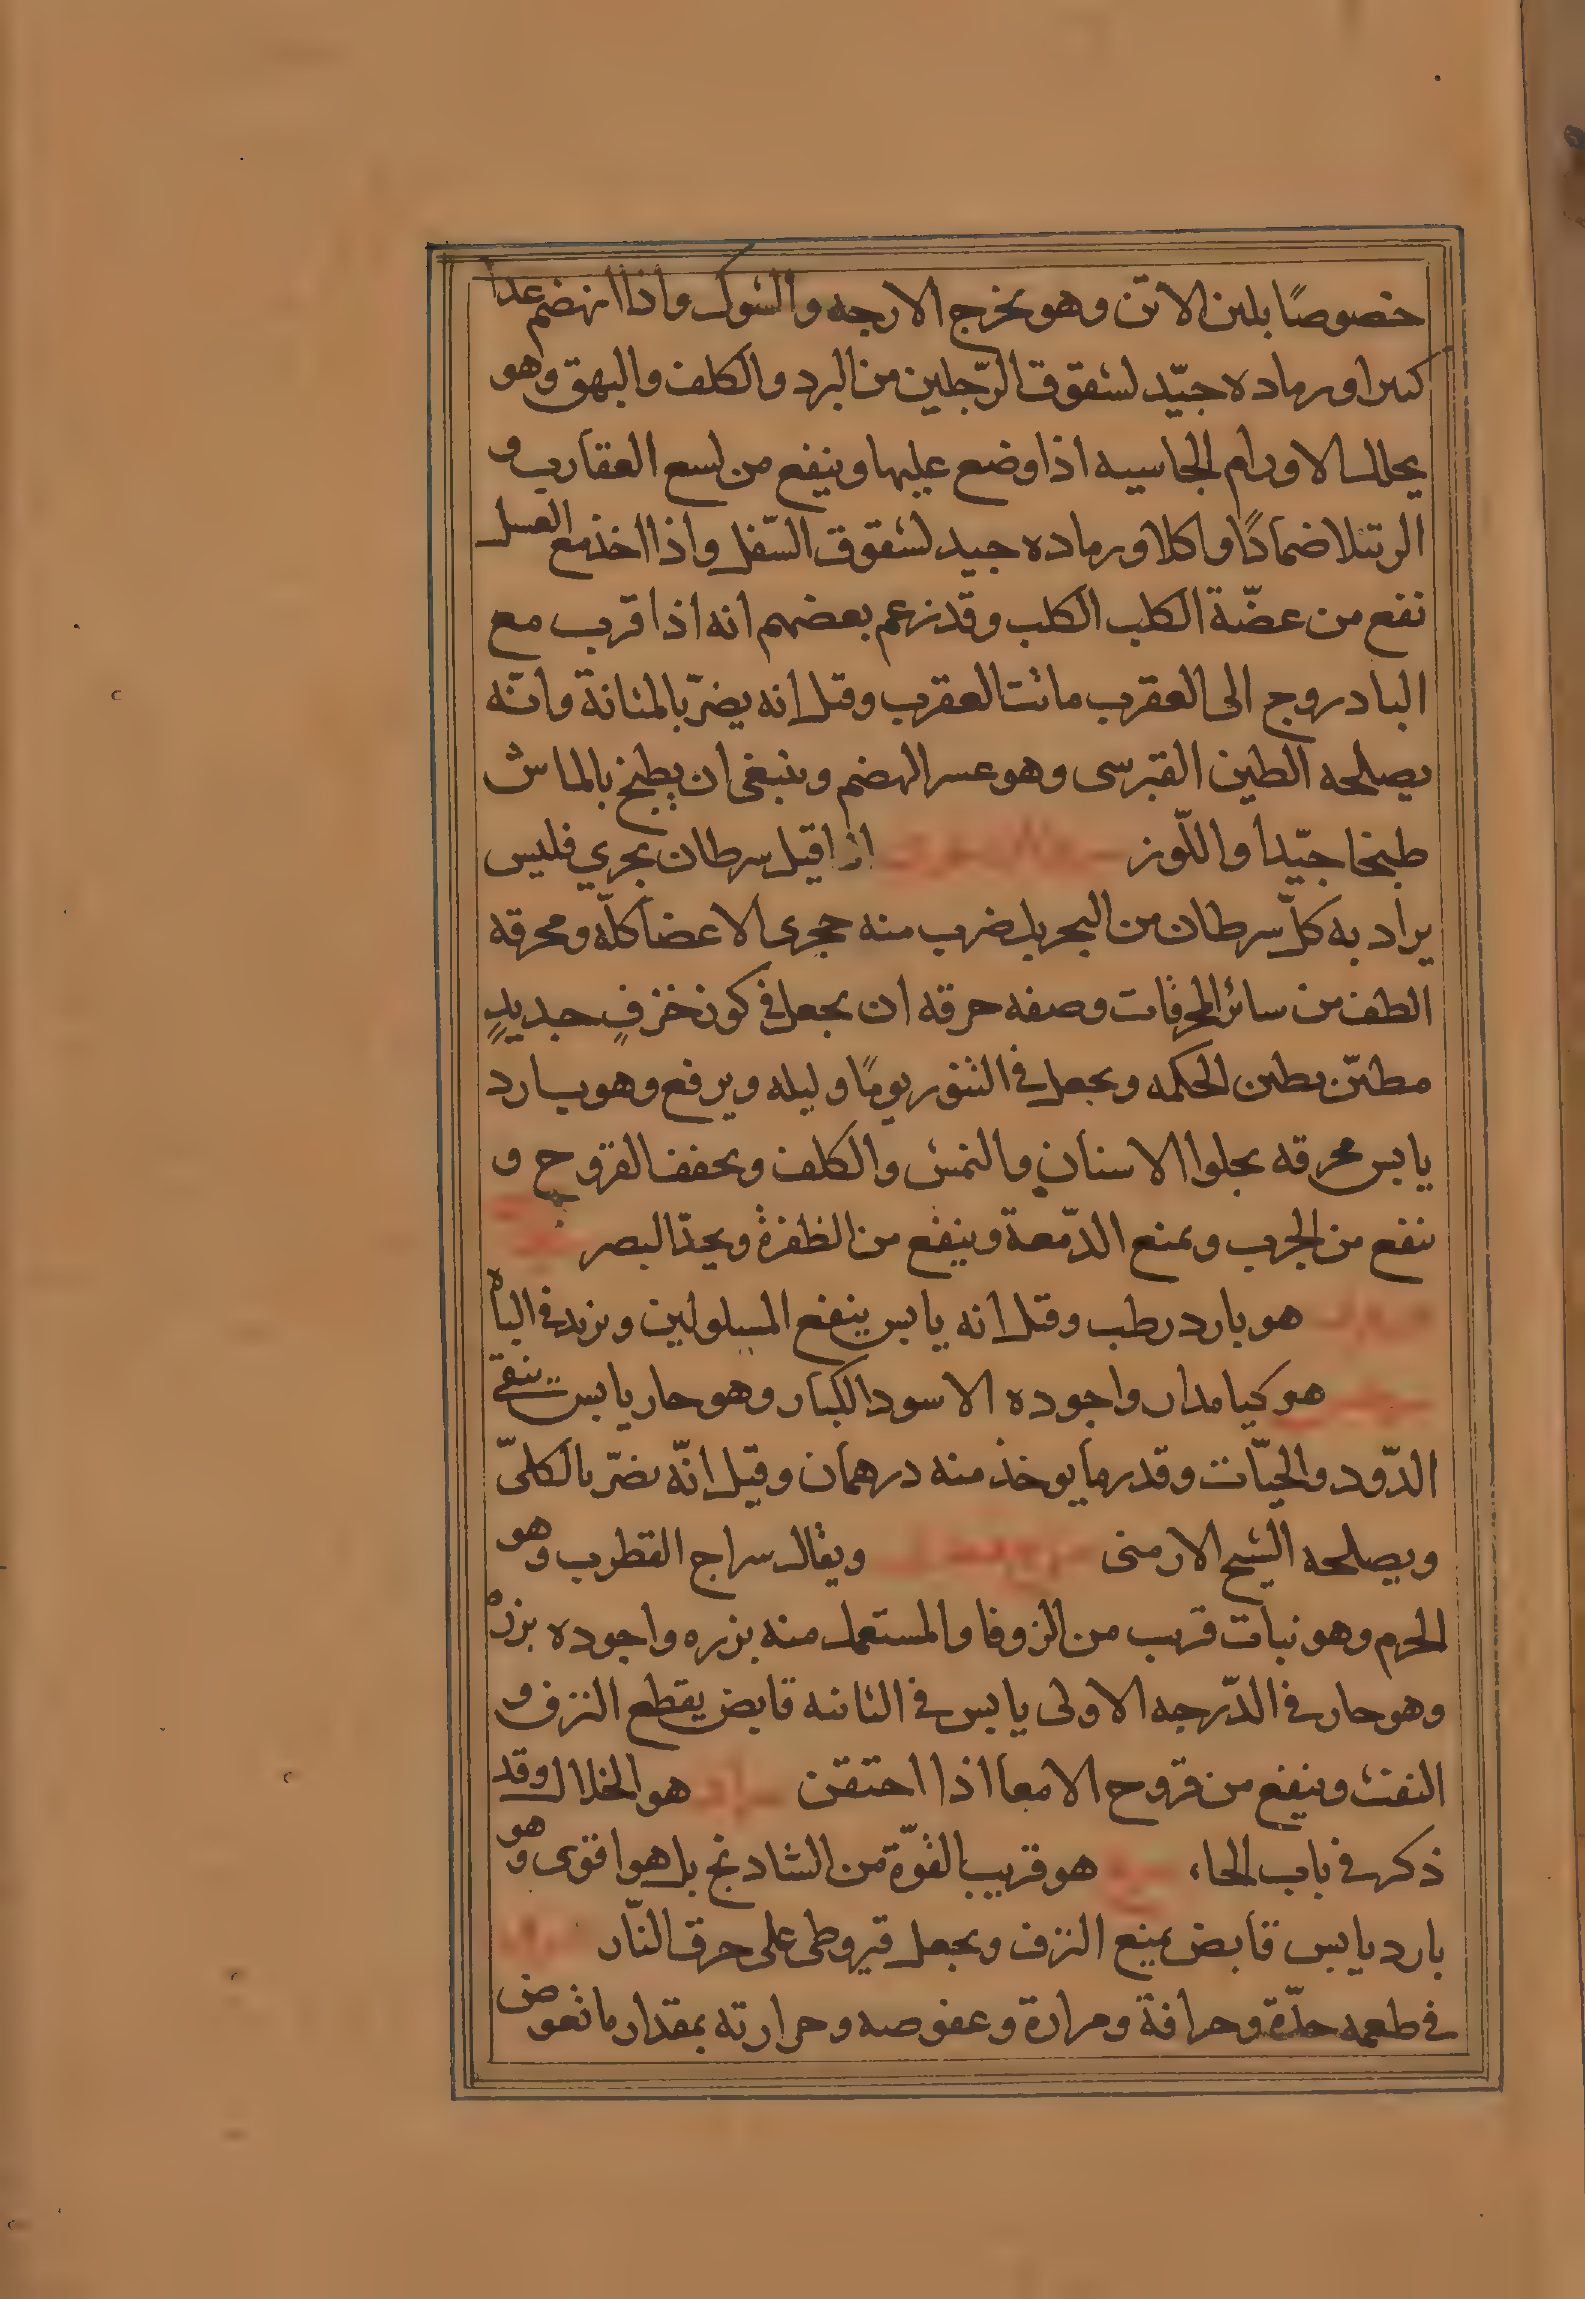 خصوصًا بلبن الاتن وهو يخرج الازجه والشوك واذا انهضم غذا
كثيرا ورماده جيّد لشقوق الرّجلين من البرد والكلف والبهق وهو
يحلل الاورام الجاسيه اذا وضع عليها وينفع من لسع العقارب و
الرتيلا ضمادًا واكلا ورماده جيد لشقوق السّفل واذا اخذ مع العسل
نفع من عضّة الكلب الكلب وقد زعم بعضهم انه اذا قرب مع
البادروج الى العقرب ماتت العقرب وقيل انه يضرّ بالمثانة وانّه
يصلحه الطين القبرسى وهو عسر الهضم وينبغى ان يطبخ بالماش
طبخا جيّدا واللّوز اذا قيل سرطان بحري فليس
يراد به كلّ سرطان من البحر بل ضرب منه حجرى الاعضا كلّه ومحرقه
الطف من سائر المحرقات وصفه حرقه ان يجعل فى كوز خزفٍ جديدٍ
مطيّن بطين الحكمه ويجعل فى التنّور يومًا وليله ويرفع وهو بارد
يابس محرقه يجلوا الاسنان والنمش والكلف ويجفف القروح و
ينفع من الجرب ويمنع الدّمعة وينفع من الظفرة ويحدّ البصر
هو بارد رطب وقيل انه يابس ينفع المسلولين ويزيد فى الباه
هو كيامدار واجوده الاسود الكبار وهو حار يابس ينقى
الدّود والحيّات وقدر ما يوخذ منه درهمان وقيل انّه يضرّ بالكلىّ
ويصلحه الشيح الارمنى ويقال سراج القطرب وهو
الخرم وهو نبات قريب من الزوفا والمستعمل منه بزره واجوده بزره
وهو حار فى الدّرجه الاولى يابس فى الثانيه قابض يقطع النزف و
النفث وينفع من قروح الامعا اذا احتقن هو الخلال وقد
ذكر فى باب الخاء هو قريب القوّة من الشادنج بل هو اقوى وهو
بارد يابس قابض يمنع النزف ويجعل قيروطى على حرق النّار
فى طعمه حدّة وحرافة ومرارة وعفوصه وحرارته بمقدار ما تغوص